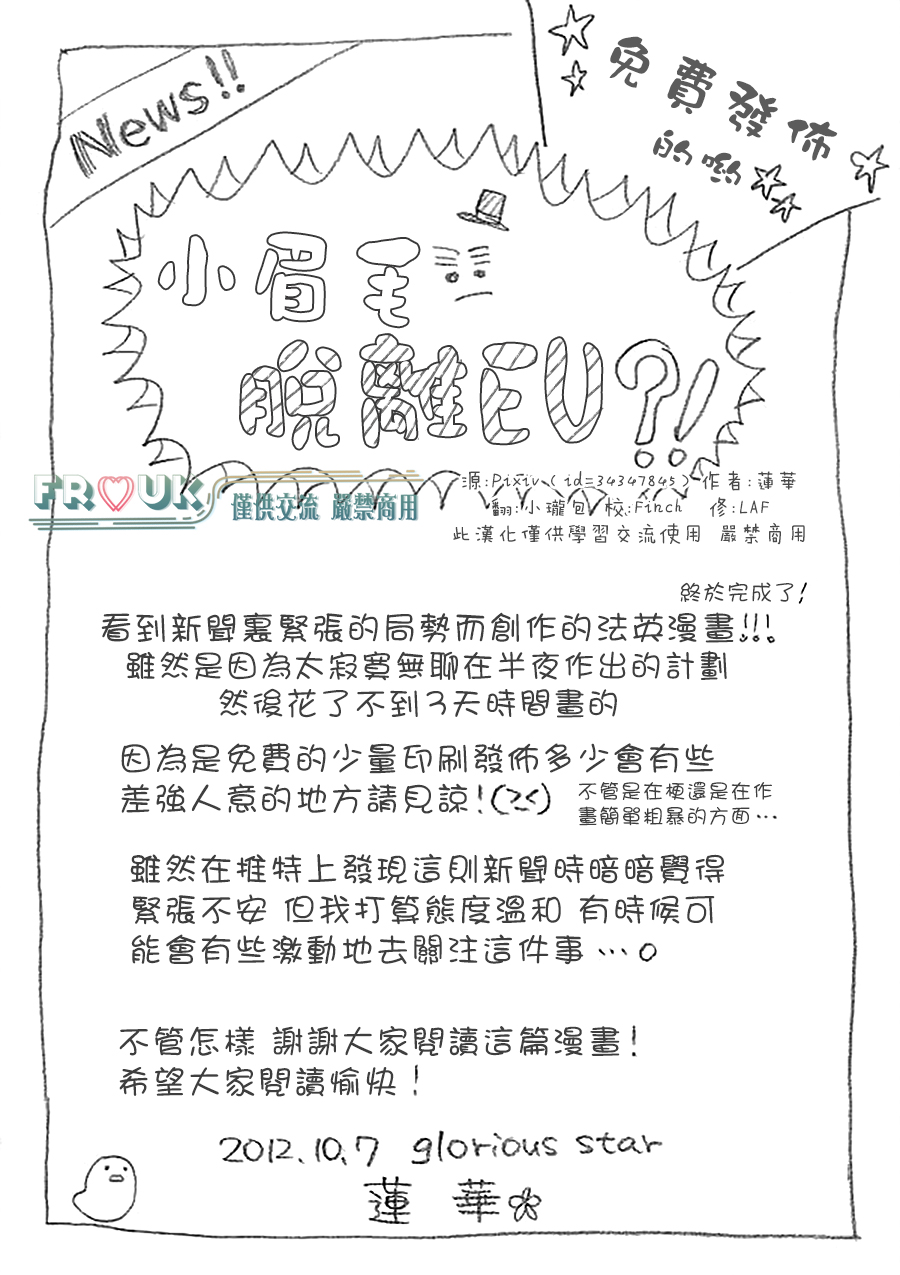 News!!
免費發佈
的喲
小眉毛
脫離EU?!
FR♡UK
僅供交流 嚴禁商用
源:Pixiv(id=34347845) 作者:蓮華
翻:小瓏包 校:Finch 修:LAF
此漢化僅供學習交流使用 嚴禁商用
終於完成了!
看到新聞裏緊張的局勢而創作的法英漫畫!!!
雖然是因為太寂寞無聊在半夜作出的計劃
然後花了不到3天時間畫的
因為是免費的少量印刷發佈多少會有些
差強人意的地方請見諒!
不管是在梗還是在作
畫簡單粗暴的方面…
雖然在推特上發現這則新聞時暗暗覺得
緊張不安 但我打算態度溫和 有時候可
能會有些激動地去關注這件事…。
不管怎樣 謝謝大家閱讀這篇漫畫!
希望大家閱讀愉快!
2012.10.7 glorious star
蓮華